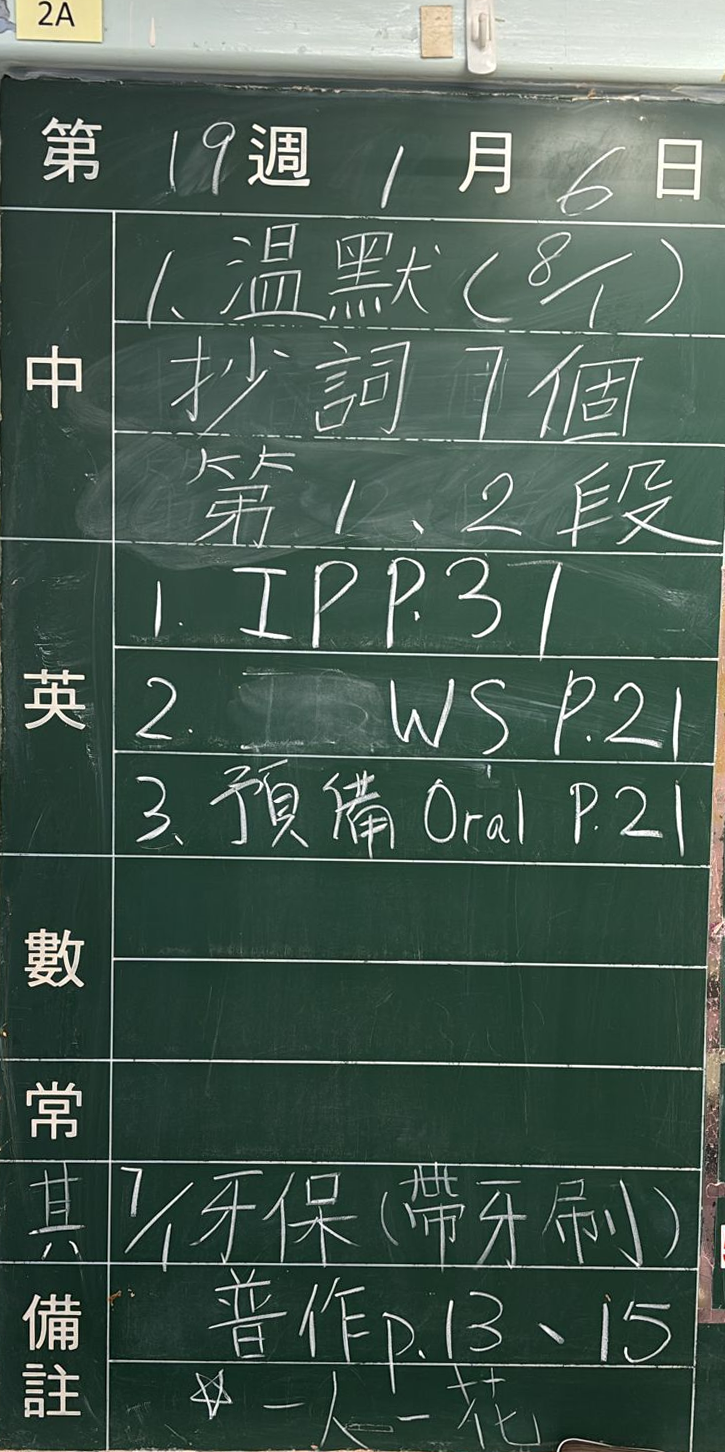 2A
第 19 週 1 月 6 日
中
1、溫默(8/1)
抄詞7個
第1、2段
英
1. IP P.37
2. WS P.21
3、預備 Oral P.21
數
常
其
7/1牙保(帶牙刷)
備註
普作p.13、15
☆一人一花